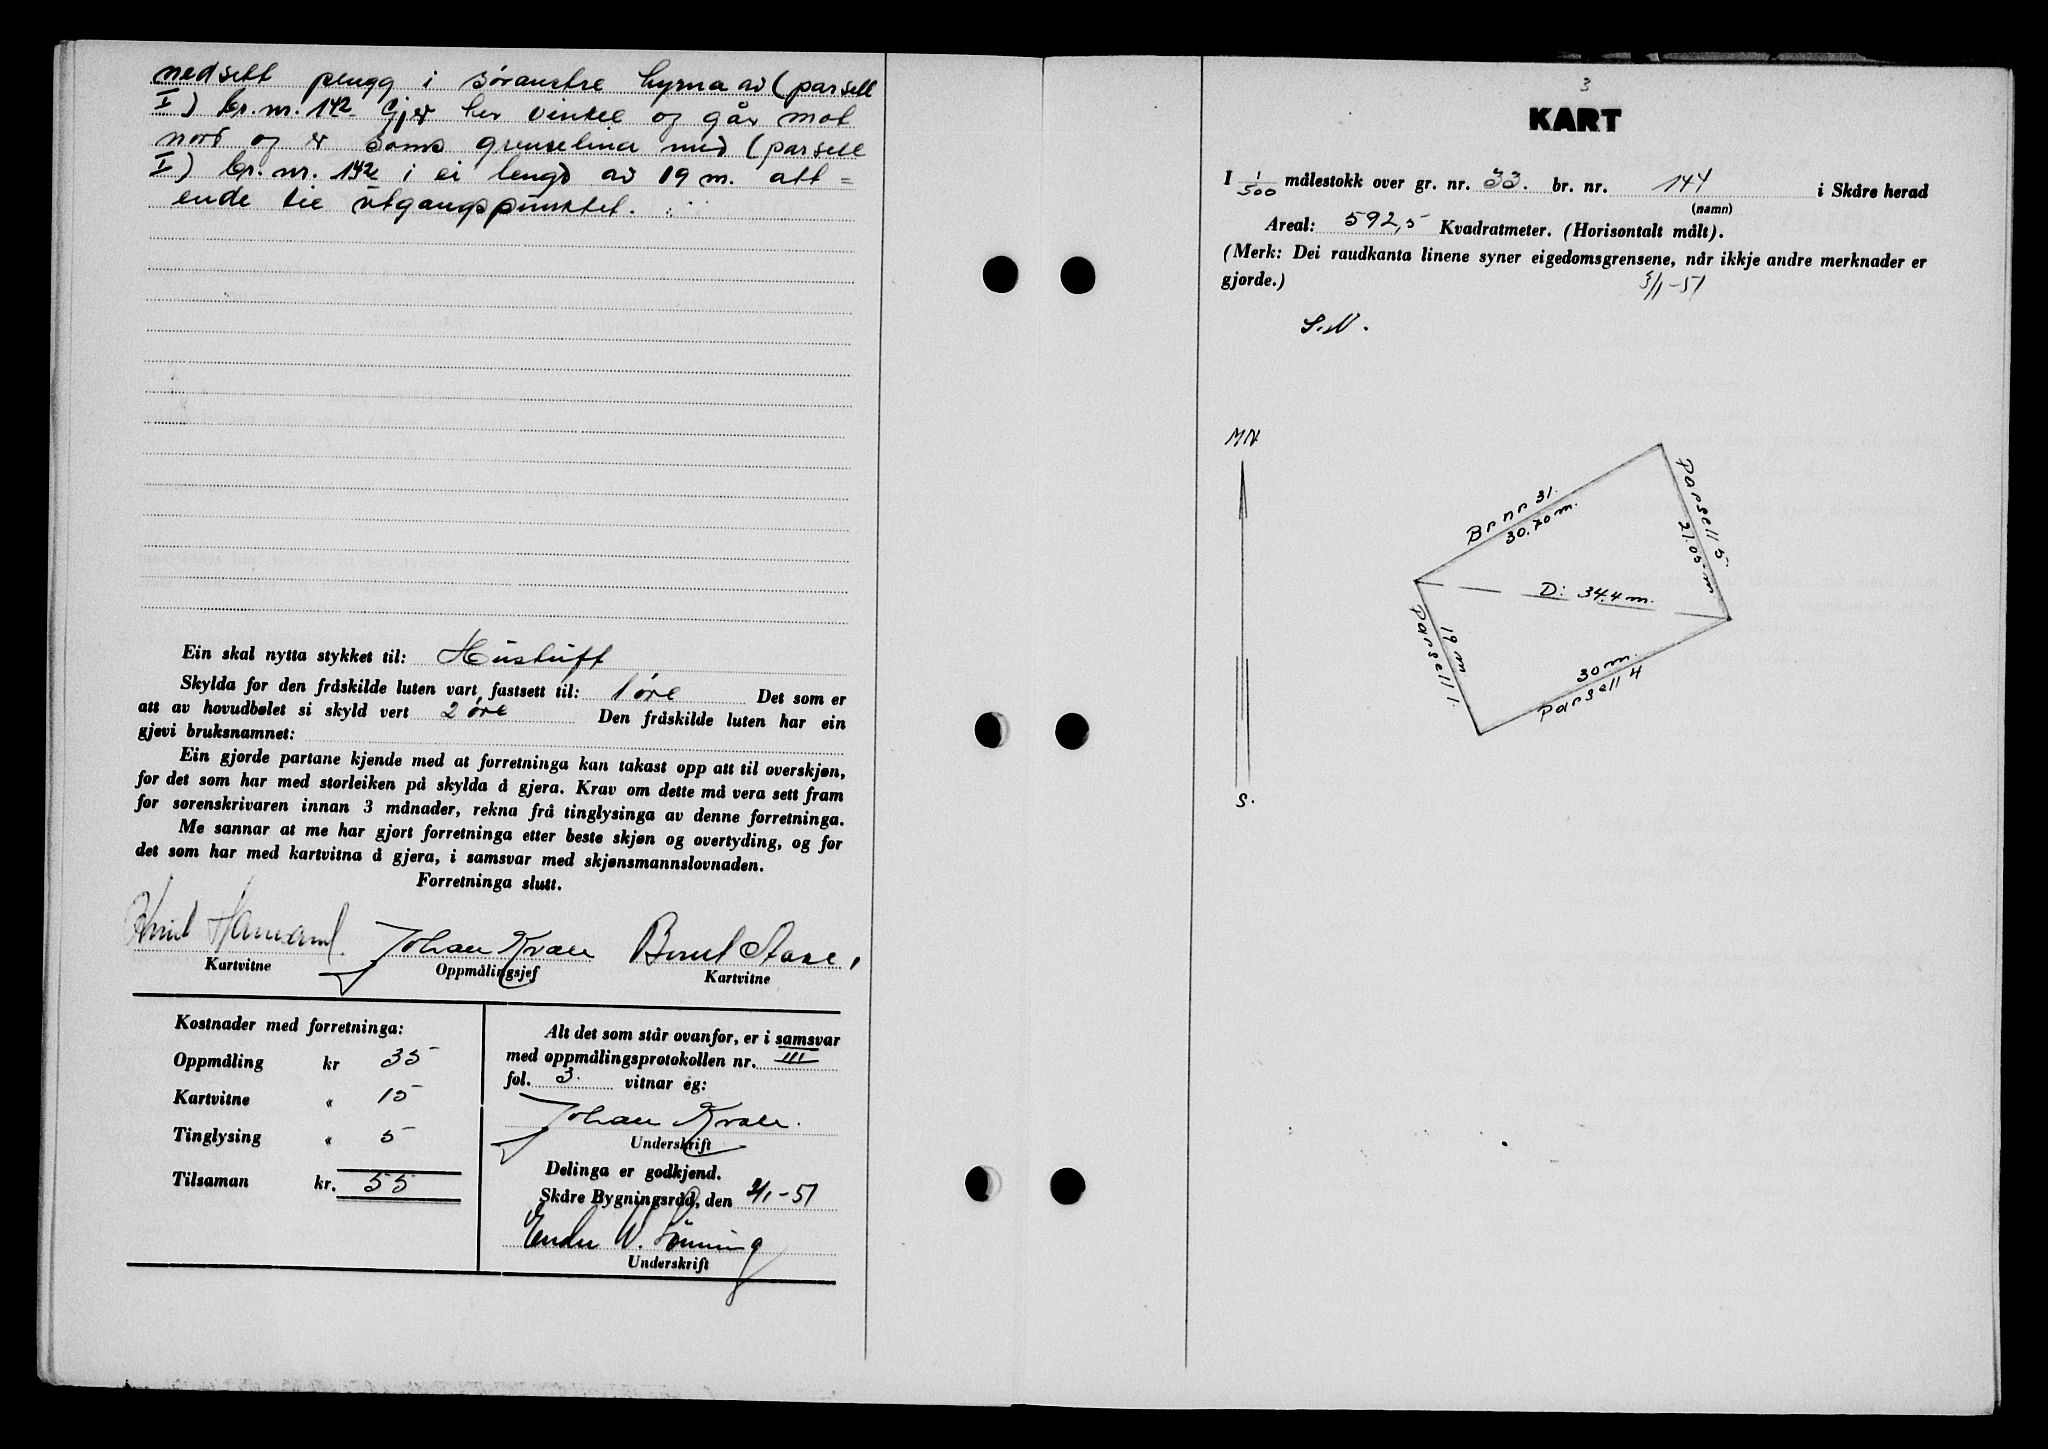 nedsett plugg i søraustre hyrna av (parsell
I) br. nr. 142 Gjer her vinkel og går mot
nord og er sams grenselina med (parsell
I) br. nr. 142 i ei lengd av 19 m. att=
ende til utgangspunktet.
Ein skal nytta stykket til: Hustuft
Skylda for den fråskilde luten vart fastsett til: 1 øre Det som er
att av hovudbølet si skyld vert 2 øre Den fråskilde luten har ein
gjevi bruksnamnet:
Ein gjorde partane kjende med at forretninga kan takast opp att til overskjøn,
for det som har med storleiken på skylda å gjera. Krav om dette må vera sett fram
for sorenskrivaren innan 3 månader, rekna frå tinglysinga av denne forretninga.
Me sannar at me har gjort forretninga etter beste skjøn og overtyding, og for
det som har med kartvitna å gjera, i samsvar med skjønsmannslovnaden.
Forretninga slutt.
Johan Kvale
Kartvitne Oppmålingsjef Kartvitne
Kostnader med forretninga:
Oppmåling kr 35
Kartvitne " 15
Tinglysing " 5
Tilsaman kr. 55
Alt det som står ovanfor, er i samsvar
med oppmålingsprotokollen nr. III
fol. 3. vitnar eg:
Johan Kvale.
Underskrift
Delinga er godkjend.
Skåre Bygningsråd, den 2/1-51
Endre W. Lønning
Underskrift
3
KART
I 1/500 målestokk over gr. nr. 33. br. nr. 144 i Skåre herad
(namn)
Areal: 592,5 Kvadratmeter. (Horisontalt målt).
(Merk: Dei raudkanta linene syner eigedomsgrensene, når ikkje andre merknader er
gjorde.)
3/1-51
S.N.
MN
S.
Brnr 31.
30.70 m.
Parsell 5
21.05 m
D: 34.4 m.
19 m
Parsell 1.
30 m.
Parsell 4